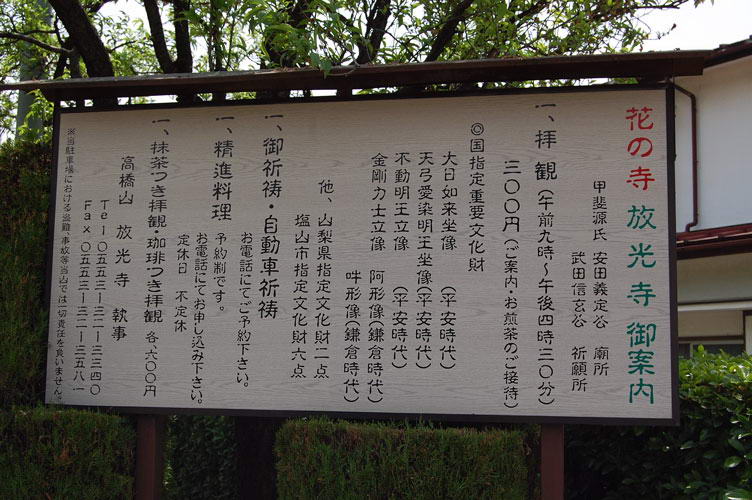 花の寺 放光寺 御案内
甲斐源氏 安田義定公 廟所
武田信玄公 祈願所
一、拝観(午前九時～午後四時三〇分)
三〇〇円(ご案内・お煎茶のご接待)
◎国指定重要文化財
大日如来坐像 (平安時代)
天弓愛染明王坐像(平安時代)
不動明王立像 (平安時代)
金剛力士立像 阿形像(鎌倉時代)
吽形像(鎌倉時代)
他、山梨県指定文化財二点
塩山市指定文化財六点
一、御祈祷・自動車祈祷
お電話にてご予約下さい。
一、精進料理
予約制です。
お電話にてお申し込み下さい。
定休日 不定休
一、抹茶つき拝観・珈琲つき拝観 各、六〇〇円
高橋山 放光寺 執事
Tel・〇五五三―三二―三三四〇
Fax・〇五五三―三二―三五八一
※当駐車場における盗難、事故等当山では一切責任を負いません。